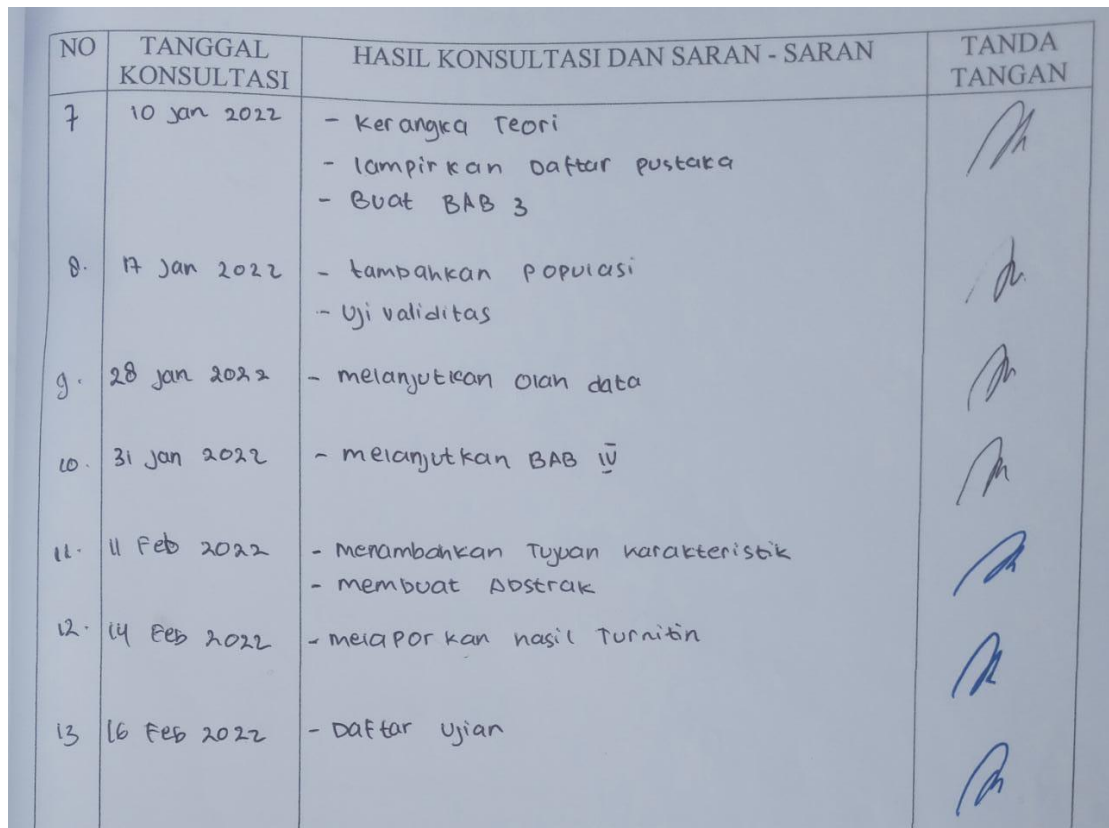 NO TANGGAL KONSULTASI HASIL KONSULTASI DAN SARAN - SARAN TANDA TANGAN
7 10 Jan 2022 - Kerangka Teori
- lampirkan Daftar pustaka
- Buat BAB 3
8. 17 Jan 2022 - tambahkan populasi
- Uji validitas
9. 28 Jan 2022 - melanjutkan olah data
10. 31 Jan 2022 - melanjutkan BAB IV
11. 11 Feb 2022 - Menambahkan Tujuan karakteristik
- membuat Abstrak
12. 14 Feb 2022 - melaporkan hasil Turnitin
13 16 Feb 2022 - Daftar Ujian